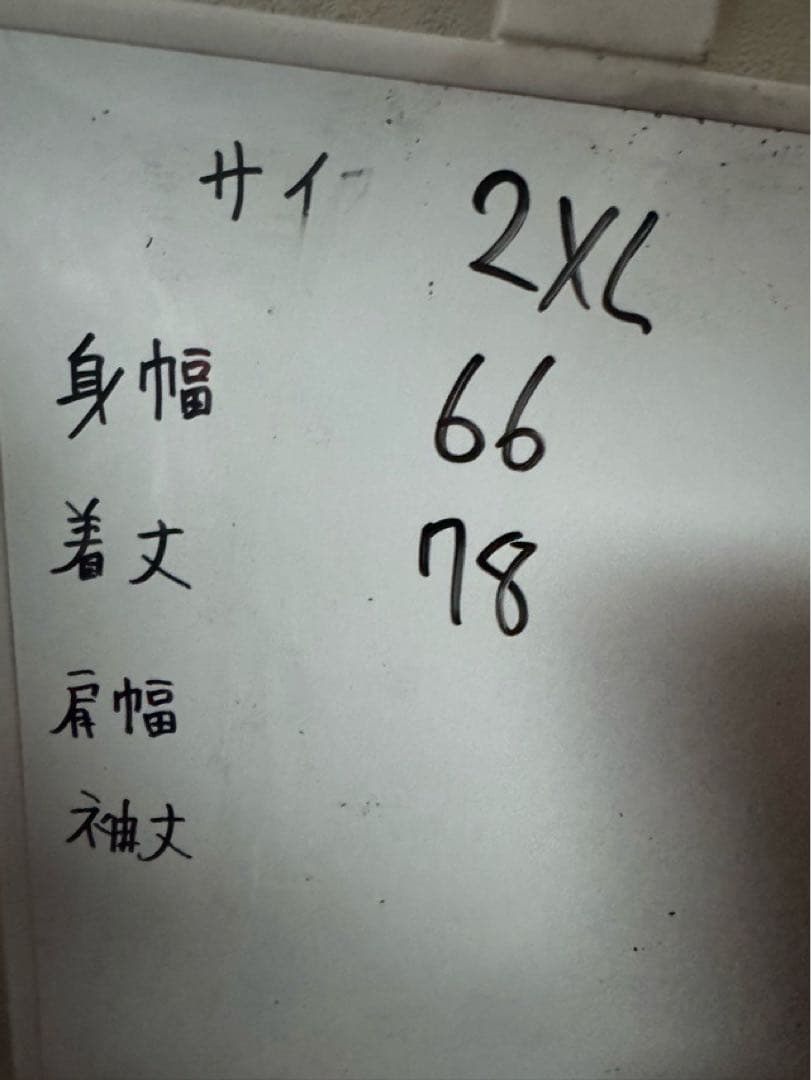 サイ 2XL
身幅 66
着丈 78
肩幅
袖丈